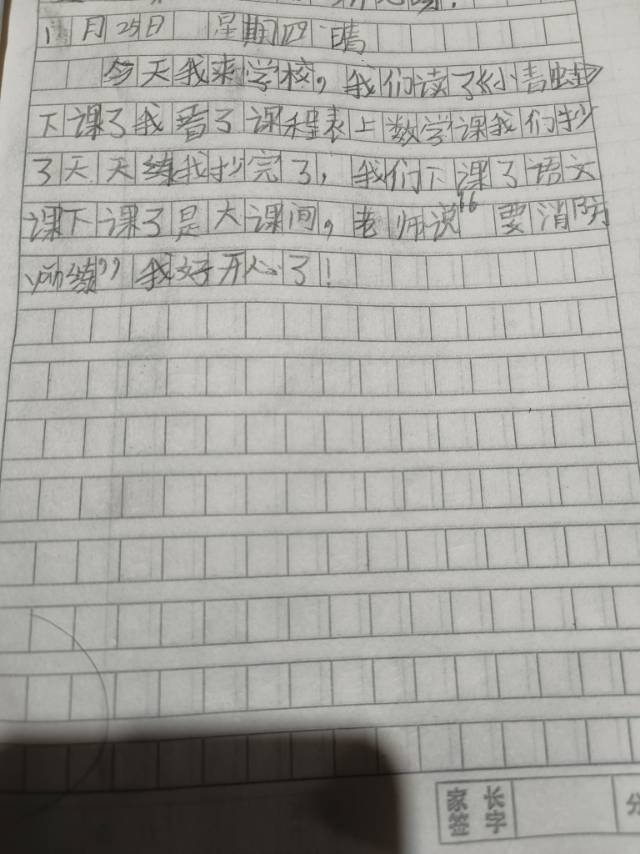 月25日 星期四 晴
今天我来学校，我们读了《小青蛙》
下课了我看了课程表上数学课我们抄
了天天练我抄完了，我们下课了语文
课下课了是大课间，老师说“要消防
演练”我好开心了！
家长
签字
分